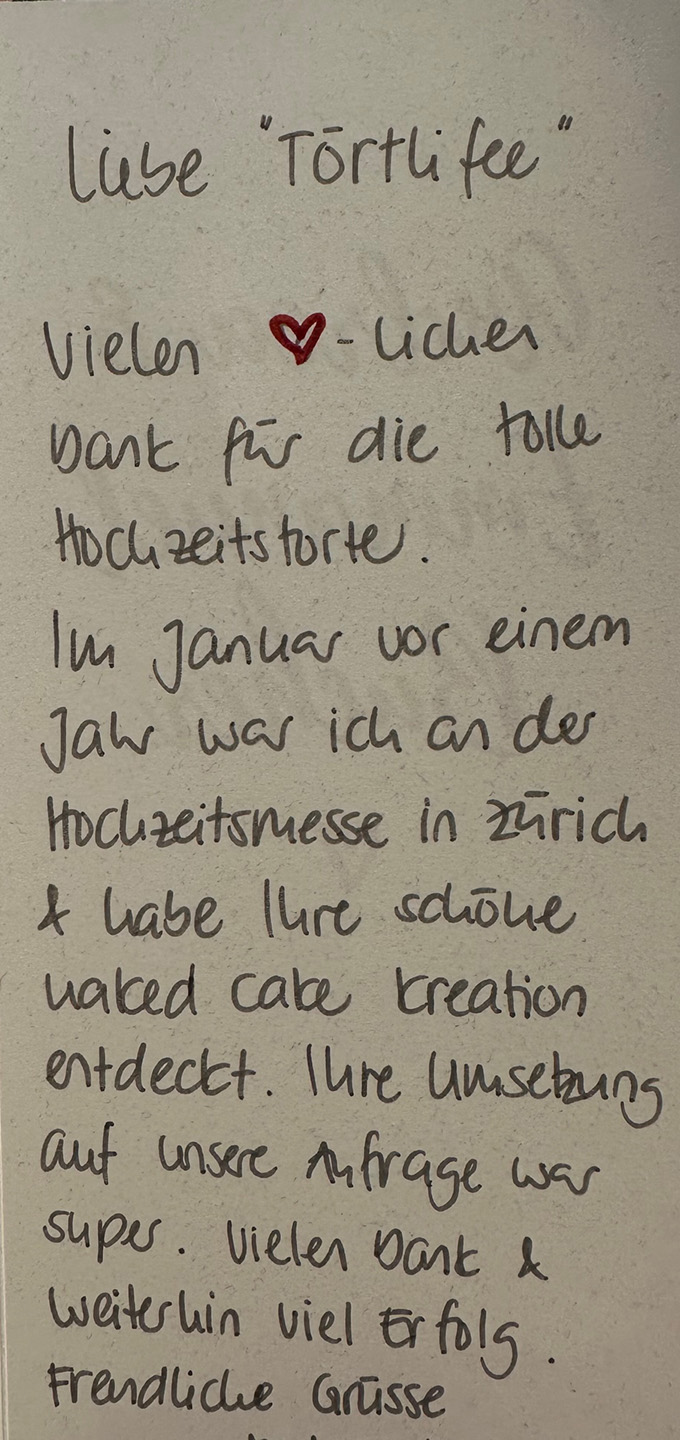 Liebe "Törtlifee"
Vielen ♥-lichen
Dank für die tolle
Hochzeitstorte.
Im Januar vor einem
Jahr war ich an der
Hochzeitsmesse in Zürich
& habe Ihre schöne
naked cake kreation
entdeckt. Ihre Umsetzung
auf unsere Anfrage war
super. Vielen Dank &
weiterhin viel Erfolg.
Freundliche Grüsse